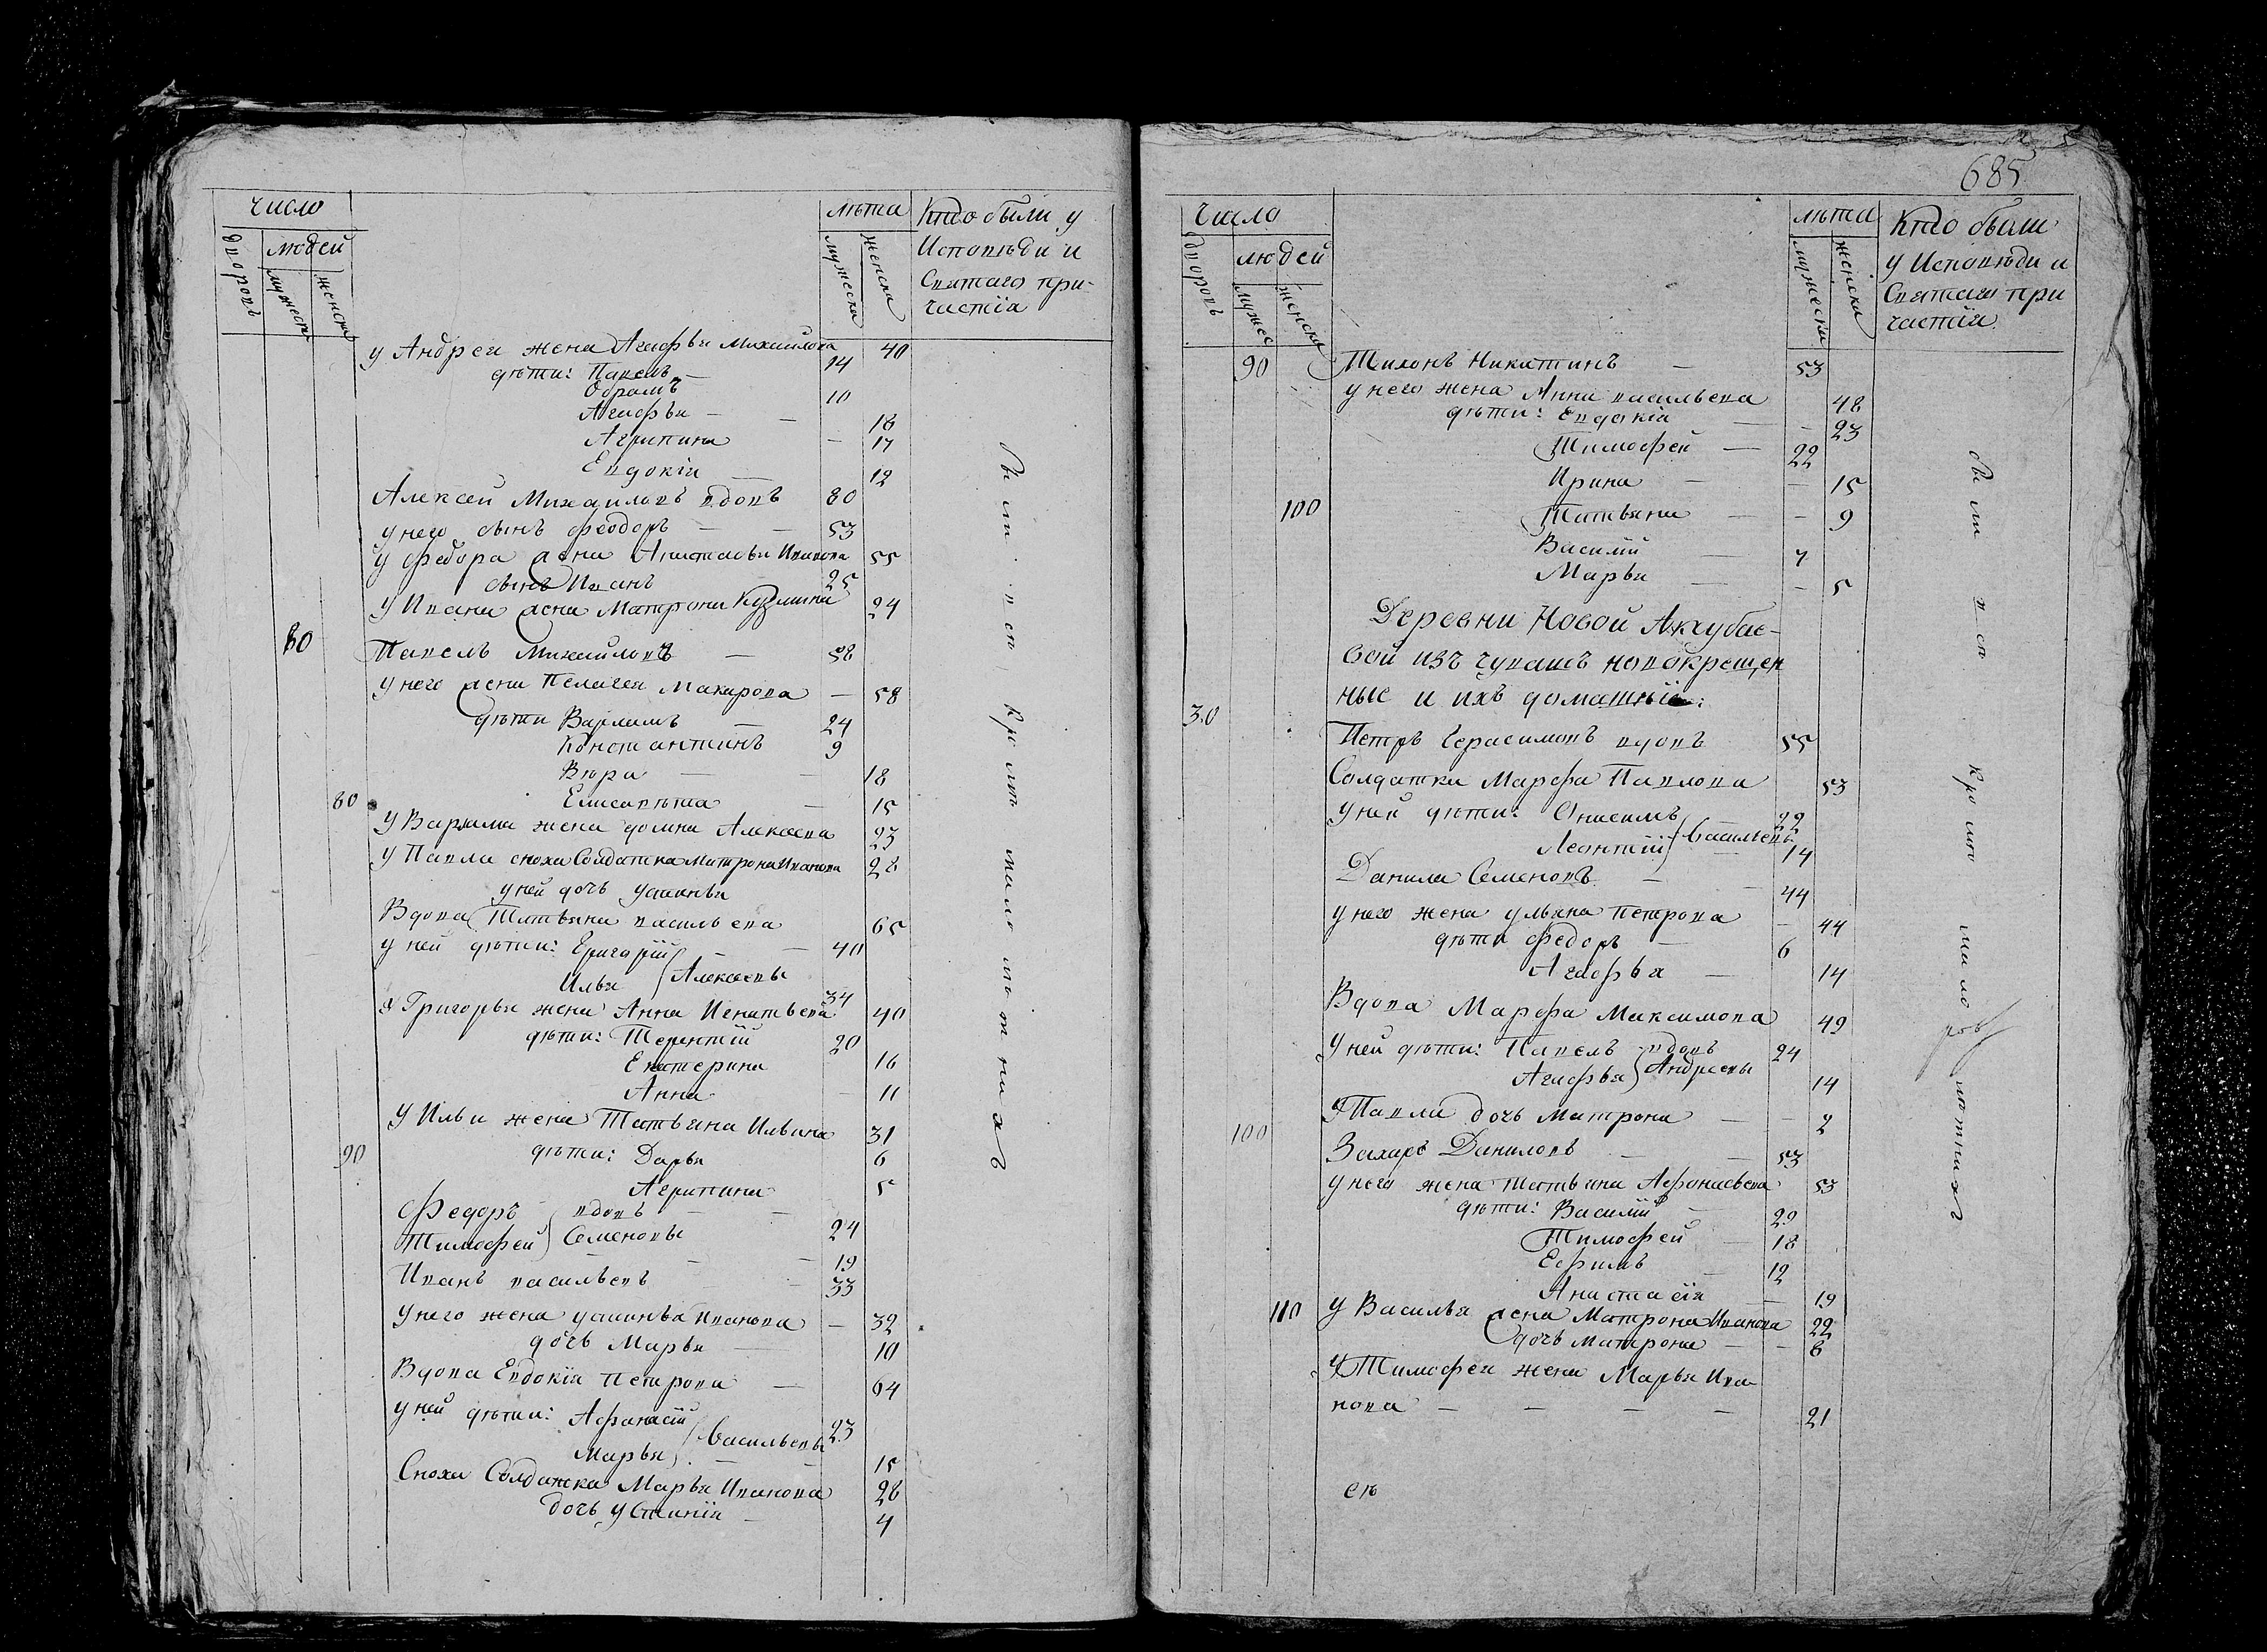 число
лѣта
Кто были у
дворовъ
людей
мужеска
женска
Исповѣди и
мужеск
женск
Святаго при-
частїя
у Андрея жена Агафья Михайлова 40
дѣти: Павелъ — 14
Обрамъ 10
Агафья — — 18
Агрипина — 17
Евдокія — 12
Алексей Михаиловъ вдовъ 80
у него сынъ Феодоръ — — 53
у Федора жена Анастасья Иванова 55
сынъ Иванъ 25
у Ивана жена Матрона Кузмина 24
80 Павелъ Михайловъ — 58
у него жена Пелагея Макарова — 58
дѣти Варламъ — 24
Константинъ 9
Вѣра — — 18
80 Елисавѣта — 15
у Варлама жена домна Алексѣева 23
у Павла сноха Солдатка Матрона Иванова 28
у ней дочь устинья
Вдова Татьяна васильева 65
у ней дѣти: Григорїй — — 40
Илья Алексѣевы 34
у Григорья жена Анна Игнатьева 40
дѣти: Терентїй 20
Екатерина 16
Анна — 11
у Ильи жена Татьяна Ильина 31
90 дѣти: Дарья 6
Агрипина 5
Федоръ вдовъ — — 24
Тимофей Семеновы — — 19
Иванъ васильевъ 33
у него жена устинья Иванова — 32
дочь Марья — 10
Вдова Евдокїя Петрова — 64
у ней дѣти: Афанасїй 23
Марья Васильевы — — 15
Сноха Солдатка Марья Иванова 28
дочь устинїя — 4
Были в сп. кромѣ малолѣтнихъ
685
Число
лѣта
Кто были
дворовъ
людей
мужеска
женска
у Исповѣди и
мужес
женска
Святаго при
частїя
90 Тихонъ Никитинъ — 53
у него жена Анна васильева 48
дѣти: Евдокїя — — 23
Тимофей — 22
Ирина — — 15
100 Татьяна — — 9
Василїй — 7
Марья — — 5
Деревни Новой Ахкубае-
вой изъ чувашъ новокрещен
ные и ихъ домашнїе:
30 Петръ Герасимовъ вдовъ 55
Солдатка Марфа Павлова 53
у ней дѣти: Онисимъ 22
Леонтїй Васильевы — 14
Данила Семеновъ — — 44
у него жена ульяна Петрова — 44
дѣти Федоръ — 6
Агафья — 14
Вдова Марфа Максимова 49
у ней дѣти: Павелъ вдовъ 24
Агафья Андреевы 14
у Павла дочь Матрона — — 2
100 Захаръ Даниловъ — — 53
у него жена Татьяна Афонасьева 53
дѣти: Василїй — 29
Тимофей — 18
Ефимъ — 12
Анастасїя — 19
110 у Василья жена Матрона Иванова 22
дочь Матрона — — 6
у Тимофея жена Марья Ива
нова — — — — 21
Были в сп. кромѣ малолѣтнихъ